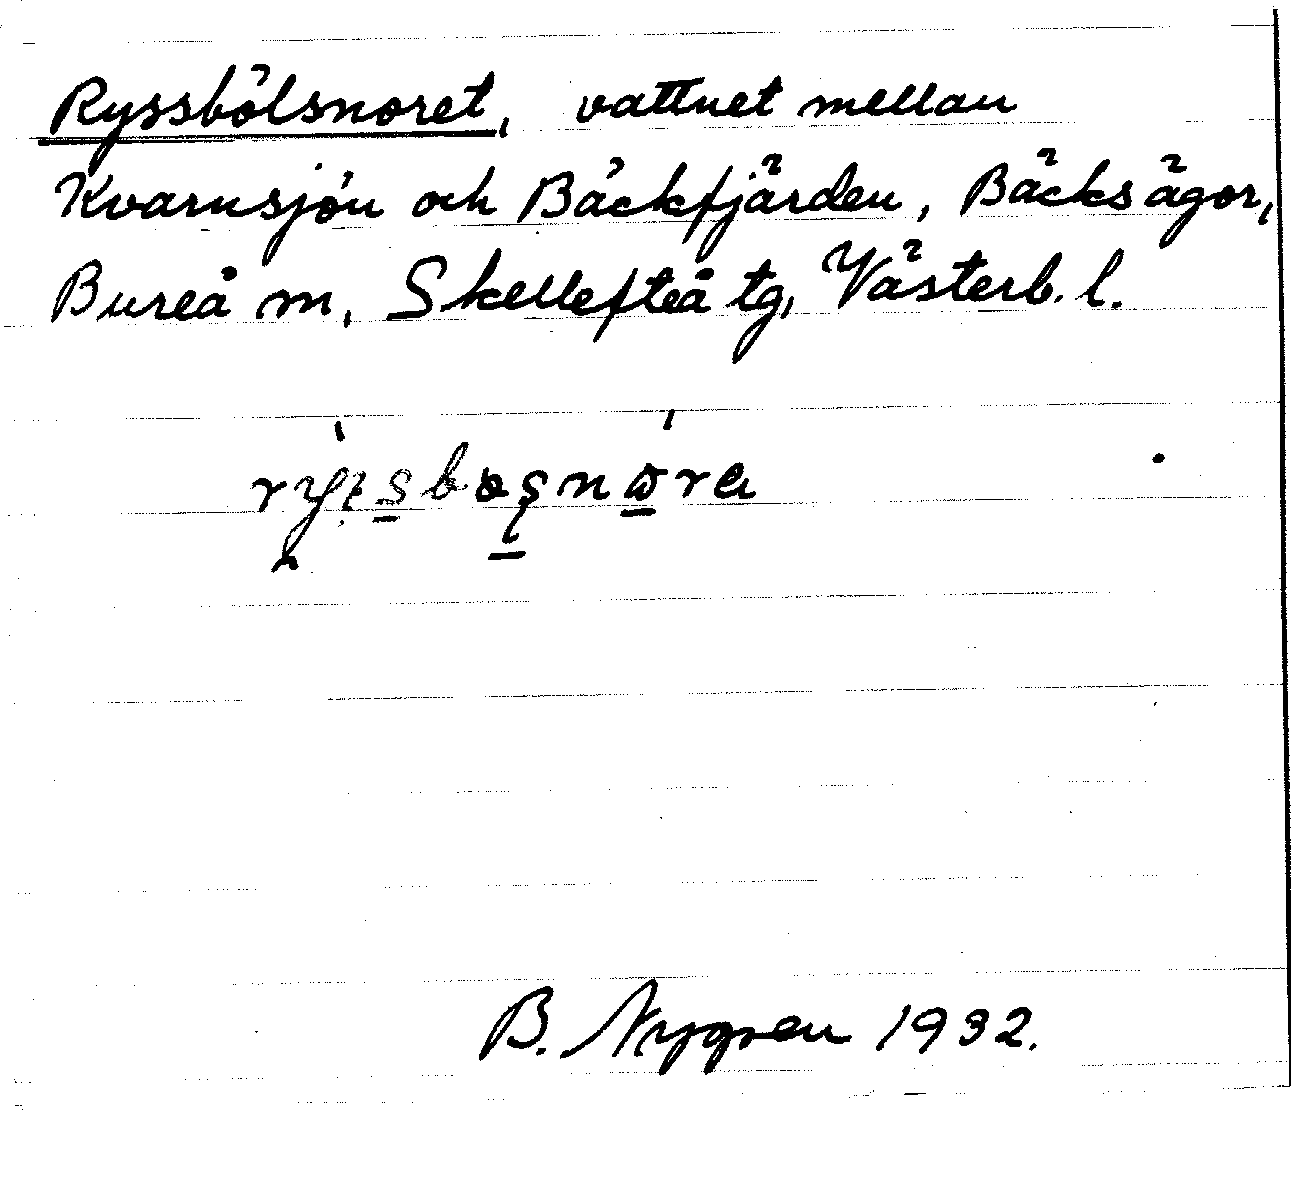 Ryssbölsnoret, vattnet mellan
Kvarnsjön och Bäckfjärden, Bäcksägor,
Bureå m, Skellefteå tg, Västerb. l.
B. Nygren 1932.